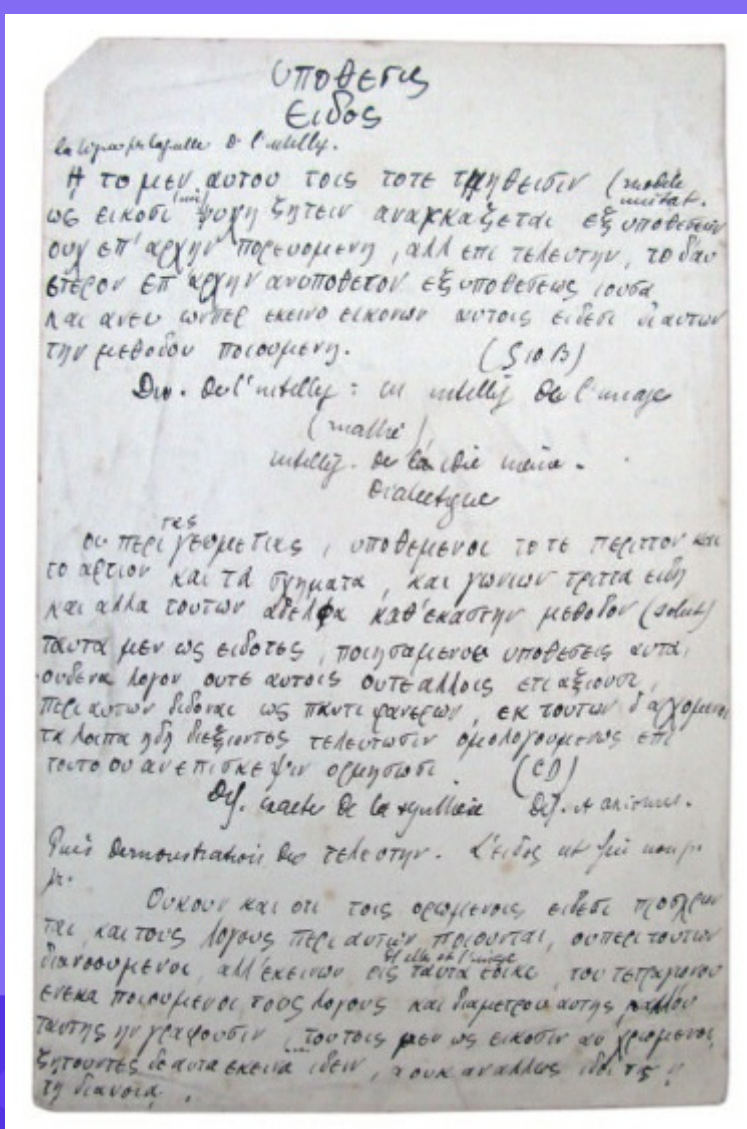 υποθεσις
ειδος
de l'intellig.
Η το μεν αυτου τοις τοτε τμηθεισιν (modèle
imitat.
ως εικοσι ψυχη ζητειν αναγκαζεται εξ υποθεσεων
ουχ επ' αρχην πορευομενη, αλλ επι τελευτην, το δ'αυ
ετερον επ' αρχην ανυποθετον εξ υποθεσεως ιουσα
και ανευ ωνπερ εκεινο εικονων αυτοις ειδεσι δι αυτων
την μεθοδον ποιουμενη. (510.B)
Div. de l'intellig : en intellig de l'image
(math)
intellig. de la
dialectique
τας
οι περι γεομετριας, υποθεμενοι το τε περιττον και
το αρτιον και τα σχηματα, και γωνιων τριττα ειδη
και αλλα τουτων αδελφα καθ'εκαστην μεθοδον
ταυτα μεν ως ειδοτες, ποιησαμενοι υποθεσεις αυτα,
ουδενα λογον ουτε αυτοις ουτε αλλοις ετι αξιουσι,
περι αυτων διδοναι ως παντι φανερων, εκ τουτων δ'αρχομενοι
τα λοιπα ηδη διεξιοντος τελευτωσιν ομολογουμενως επι
τουτο ου αν επισκεψιν ορμησωσι. (CD)
Def. exacte de la synthèse Def. et axiomes.
Puis démonstration τελευτην. L'ειδος
Ουκουν και οτι τοις ορωμενοις ειδεσι προσχρων
ται, και τους λογους περι αυτων ποιουνται, ου περι τουτων
διανοουμενοι, αλλ'εκεινων εις ταυτα εοικε, του τετραγωνου
ενεκα ποιουμενοι τους λογους και διαμετρου αυτης μαλλον
ταυτης ην γραφουσιν, τουτοις μεν ως εικοσιν αυ χρωμενοι,
ζητουντες δε αυτα εκεινα ιδειν, α ουκ αν αλλως ιδοι τις
τη διανοια.